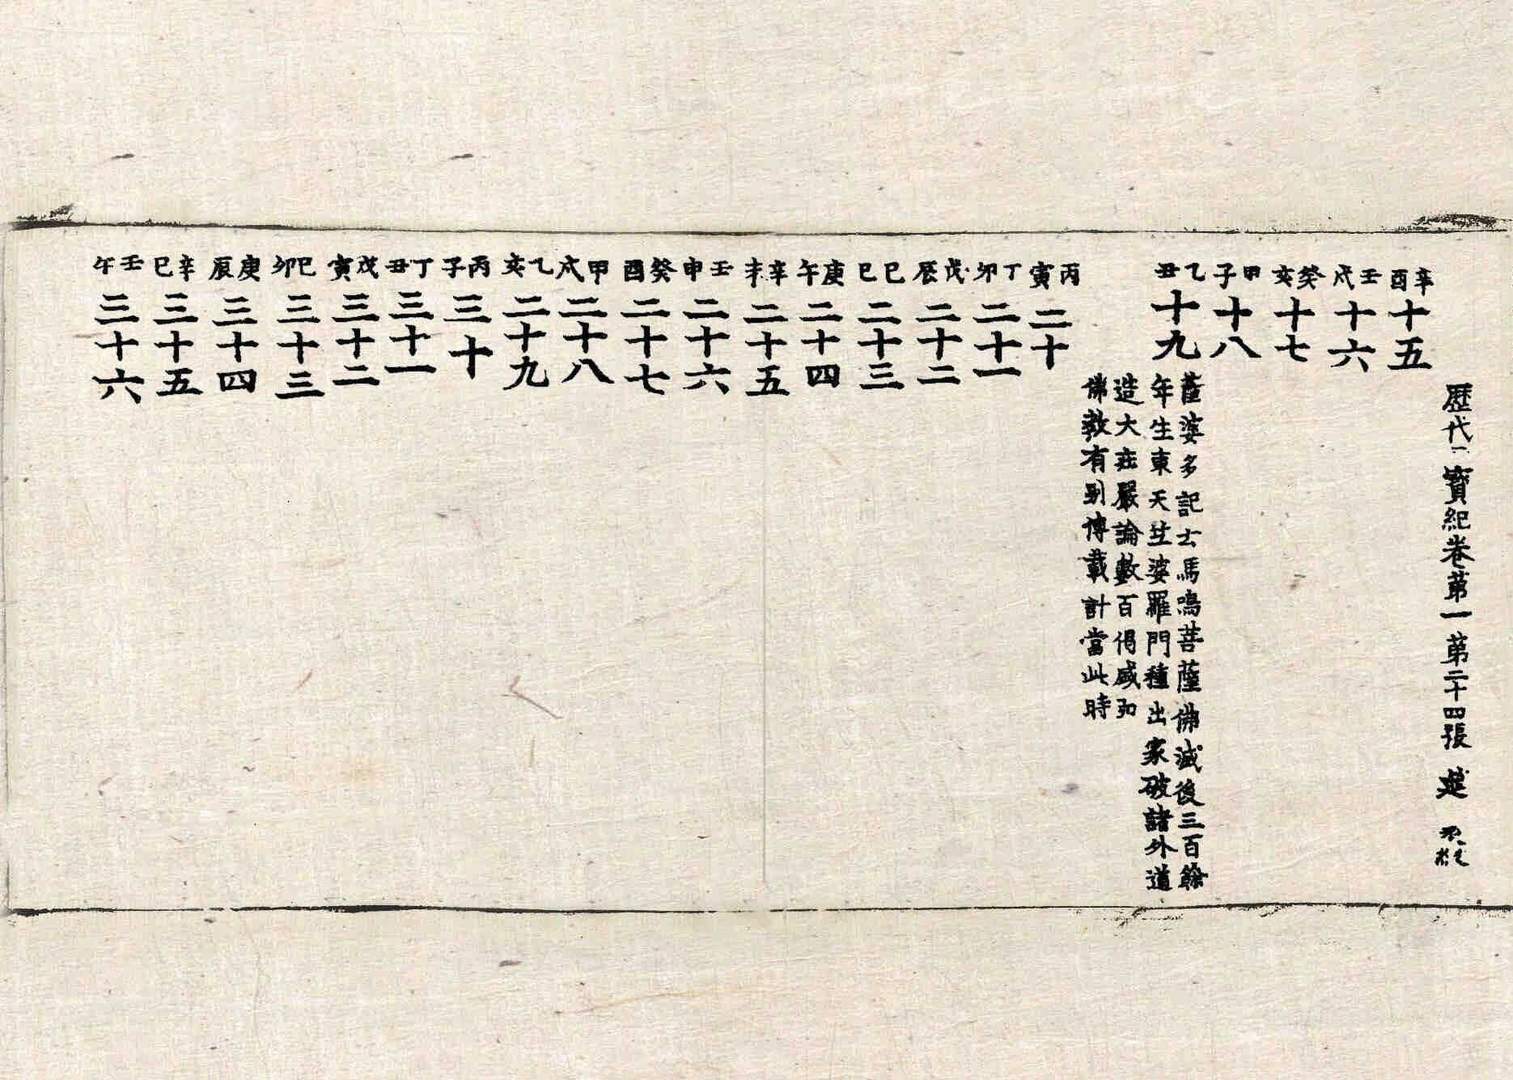 歷代三寶紀卷苐一 苐二十四張 楚
辛酉十五
壬戌十六
癸亥十七
甲子十八
乙丑十九
薩婆多記云馬鳴菩薩佛滅後三百餘
年生東天竺婆羅門種出家破諸外道
造大莊嚴論數百偈盛弘
佛教有別傳載計當此時
丙寅二十
丁卯二十一
戊辰二十二
己巳二十三
庚午二十四
辛未二十五
壬申二十六
癸酉二十七
甲戌二十八
乙亥二十九
丙子三十
丁丑三十一
戊寅三十二
己卯三十三
庚辰三十四
辛巳三十五
壬午三十六